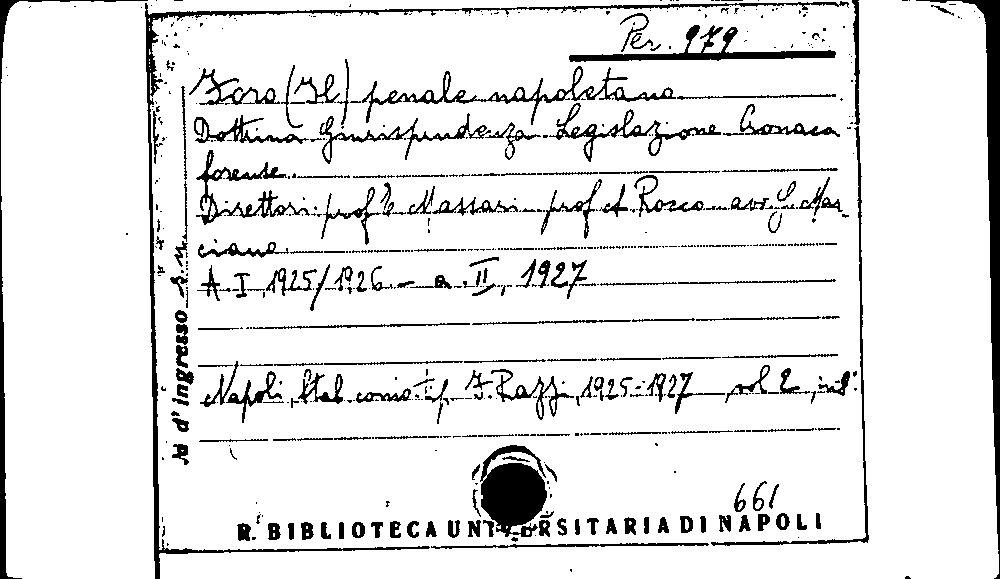 Per. 979
Foro (Il) penale napoletano.
Dottrina Giurisprudenza Legislazione Cronaca
forense.
Direttori: prof E. Massari prof A. Rocco avv. G. Mar-
ciano.
A. I, 1925/1926 – a. II, 1927
Napoli, Stab. tip. F. Razzi, 1925-1927, vol 2, in 8°
N d' ingresso
661
R. BIBLIOTECA UNIVERSITARIA DI NAPOLI